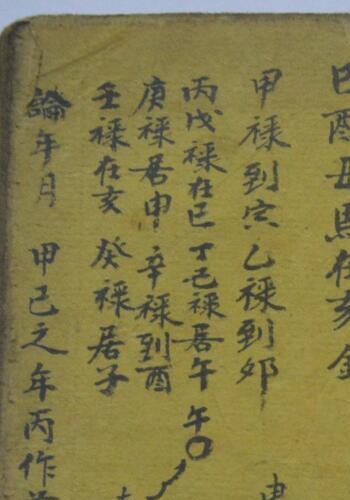 巳酉丑馬在亥
甲禄到寅乙禄到卯
丙戊禄在巳丁己禄居午
庚禄居申辛禄到酉
壬禄在亥癸禄居子
論年月 甲己之年丙作